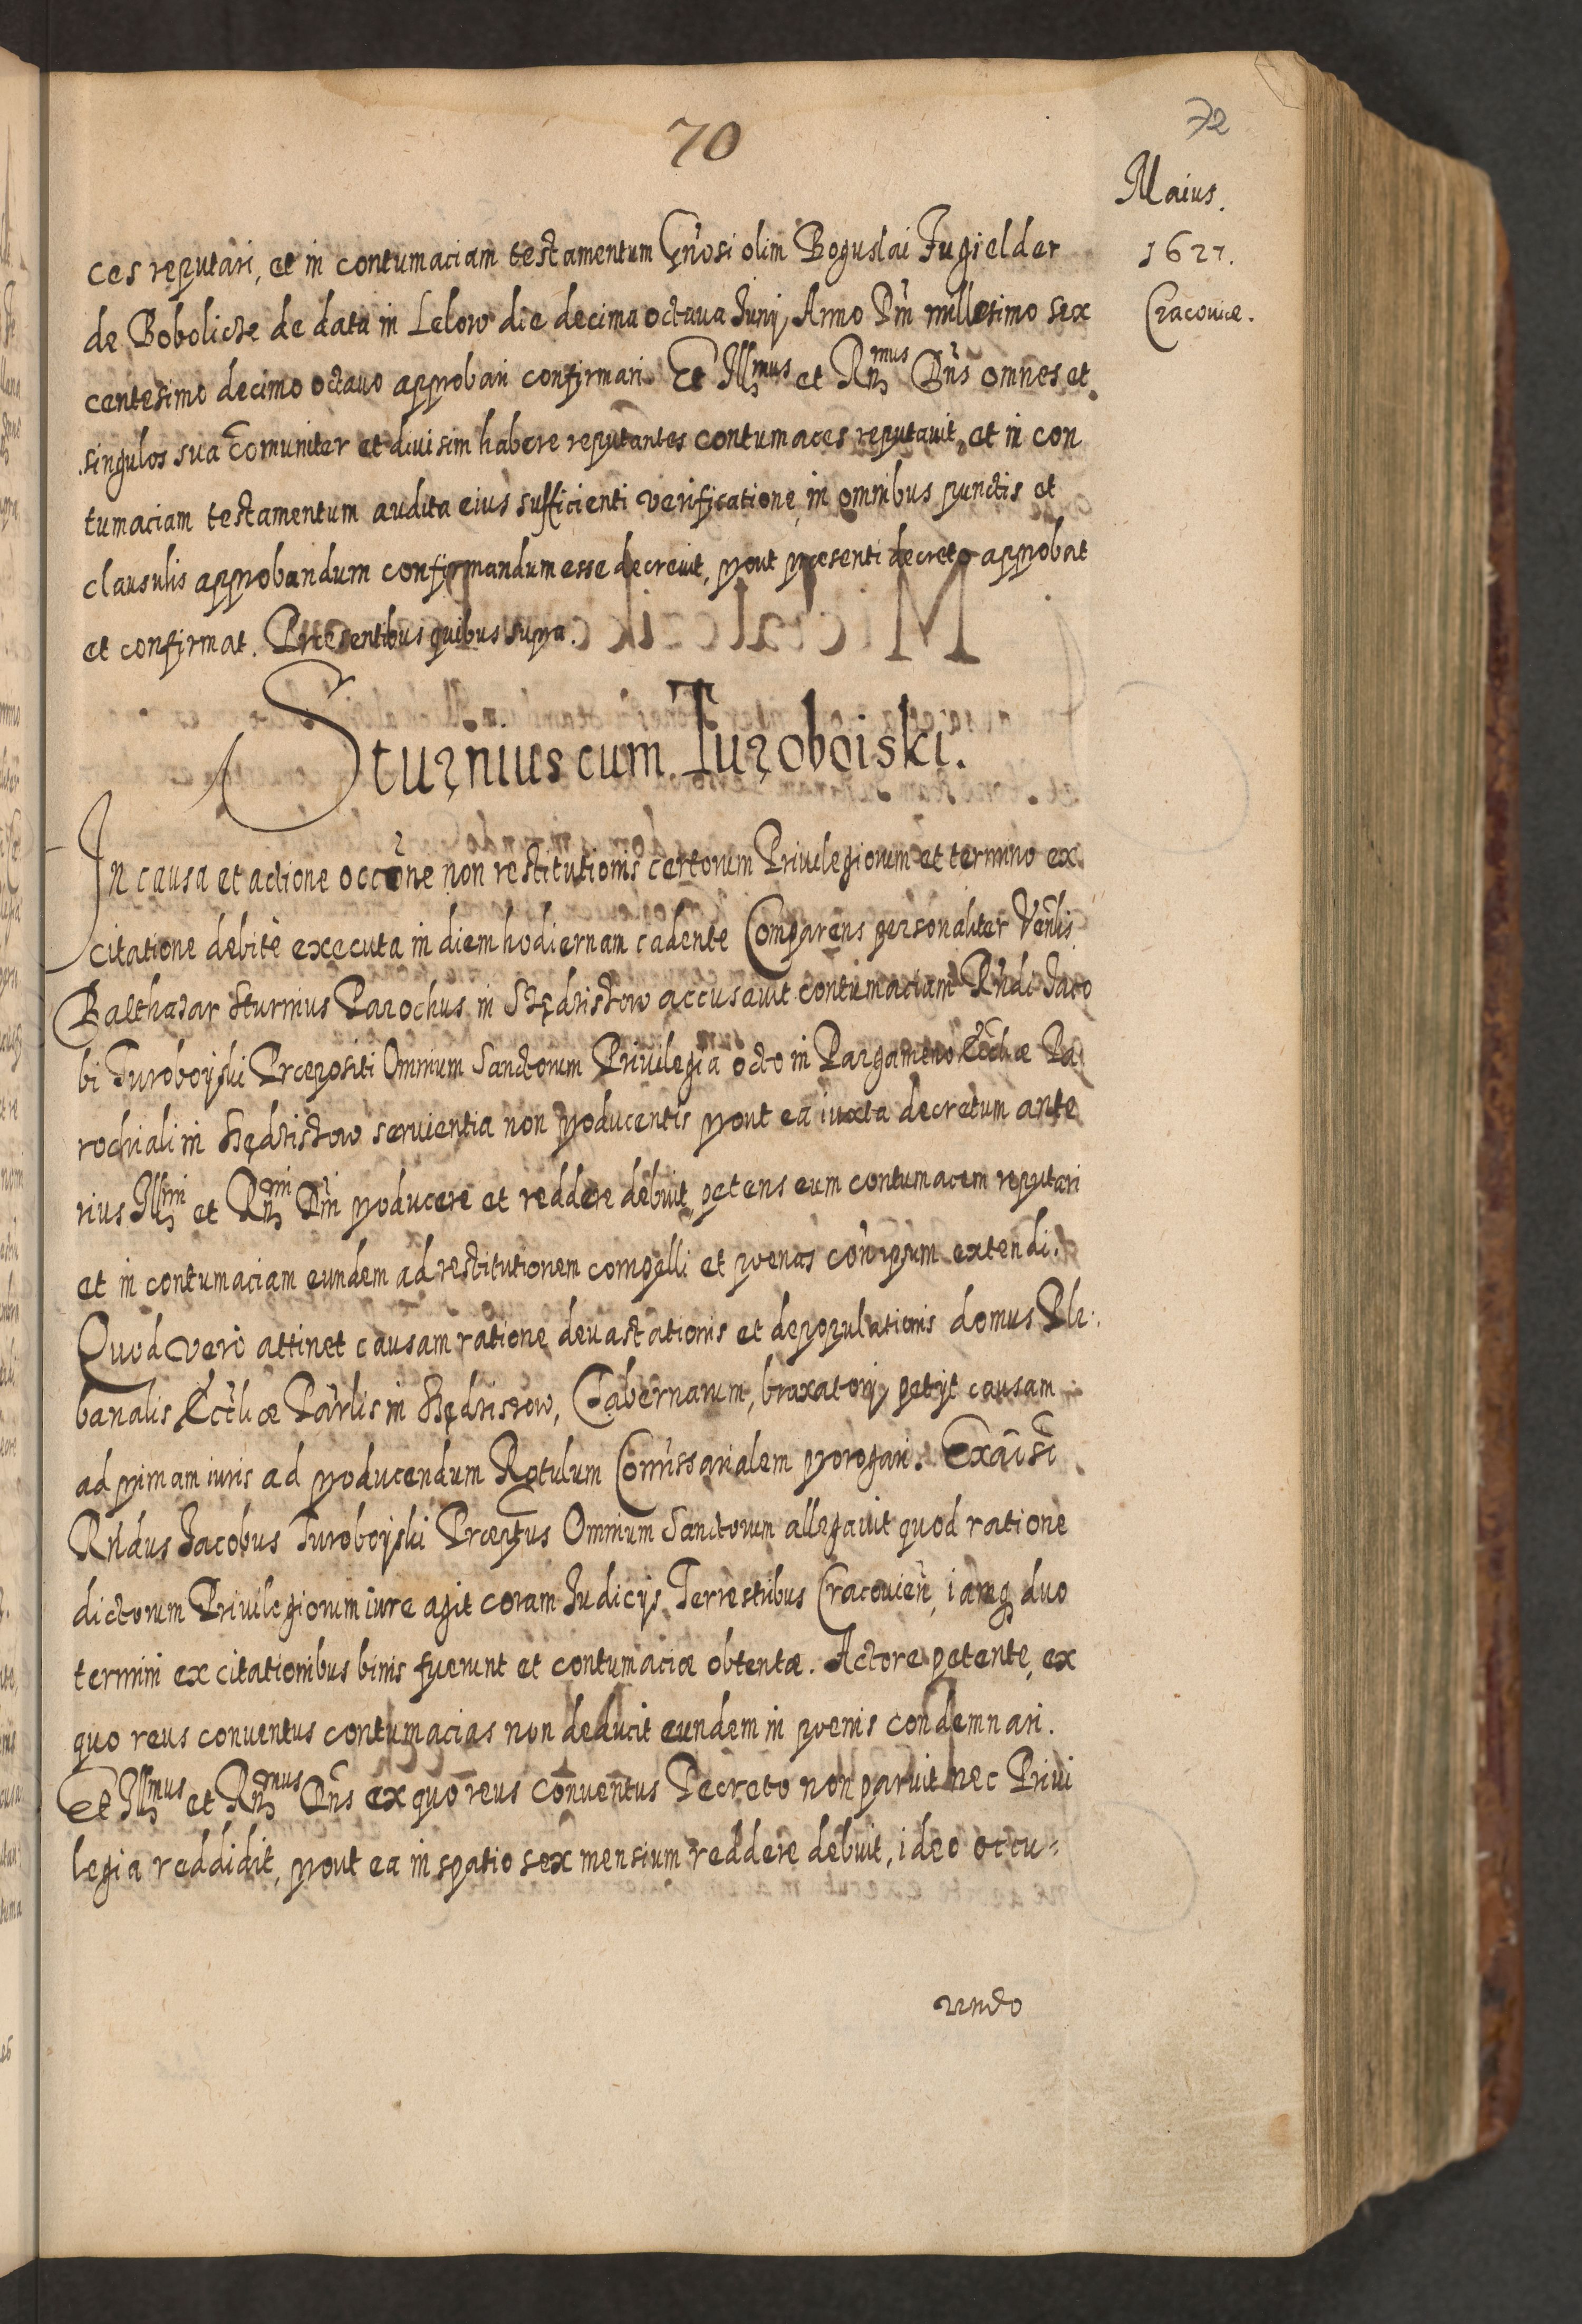 70
72
Maius.
1621.
Cracoviæ.
ces reputari, et in contumaciam testamentum Gn̄osi olim Boguslai Fugielder
de Bobolicze de data in Lelow die decima octava Junij, Anno Dn̄i millesimo sex
centesimo decimo octavo approbari confirmari. Et Illmus et Rn̄mus Dn̄s omnes et
singulos sua com̄uniter et divisim habere reputantes contumaces reputavit, et in con
tumaciam testamentum audita eius sufficienti verificatione, in omnibus punctis et
clausulis approbandum confirmandum esse decrevit, prout præsenti decreto approbat
et confirmat. Præsentibus quibus supra.
Sturnius cum Turoboiski.
In causa et actione occōne non restitutionis certorum Privilegiorum et termino ex
citatione debitè executa in diem hodiernam cadente Comparens personaliter Venlis
Balthazar Sturnius Parochus in Szędziszow accusavit contumaciam Rn̄di Jaco
bi Turoboyski Præpositi Omnium Sanctorum Privilegia octo in Pargameno Eccl̄iæ Pa
rochiali in Szędziszow servientia non producentis prout ea iuxta decretum ante
rius Illmi et Rn̄mi Dn̄i producere et reddere debuit, petens eum contumacem reputari
et in contumaciam eundem ad restitutionem compelli et pœnas con̄ ipsum extendi.
Quod verò attinet causam ratione devastationis et depopulationis domus Ple:
banalis Eccl̄iæ Par̄lis in Szędziszow, Tabernarum, braxatorij, petijt causam
ad primam iuris ad producendum Rotulum Com̄issarialem prorogari. Exaīsi
Rn̄dus Jacobus Turoboyski Præptus Omnium Sanctorum allegavit quod ratione
dictorum Privilegiorum iure agit coram Judicijs Terrestribus Cracovien̄, iamq duo
termini ex citationibus binis fuerunt et contumaciæ obtentæ. Actore petente, ex
quo reus conventus contumacias non deducit eundem in pœnis condemnari.
Et Illmus et Rn̄mus Dn̄s ex quo reus conventus Decreto non paruit nec Privi
legia reddidit, prout ea in spatio sex mensium reddere debuit, ideo occu=